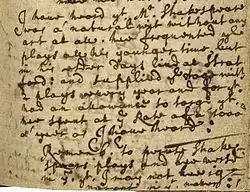 I have heard yt Mr. Shakespeare
was a natural wit without any
art at all; hee frequented ye
plays all his younger time, but
in his elder days lived at Strat
ford: and supplied ye stage with
2 plays every year and for yt
had an allowance so large, yt
hee spent att ye Rate of a 1000 l
a year as I have heard:
Remember to peruse Shake-
spears plays and bee versd
in ym yt I may not bee ig